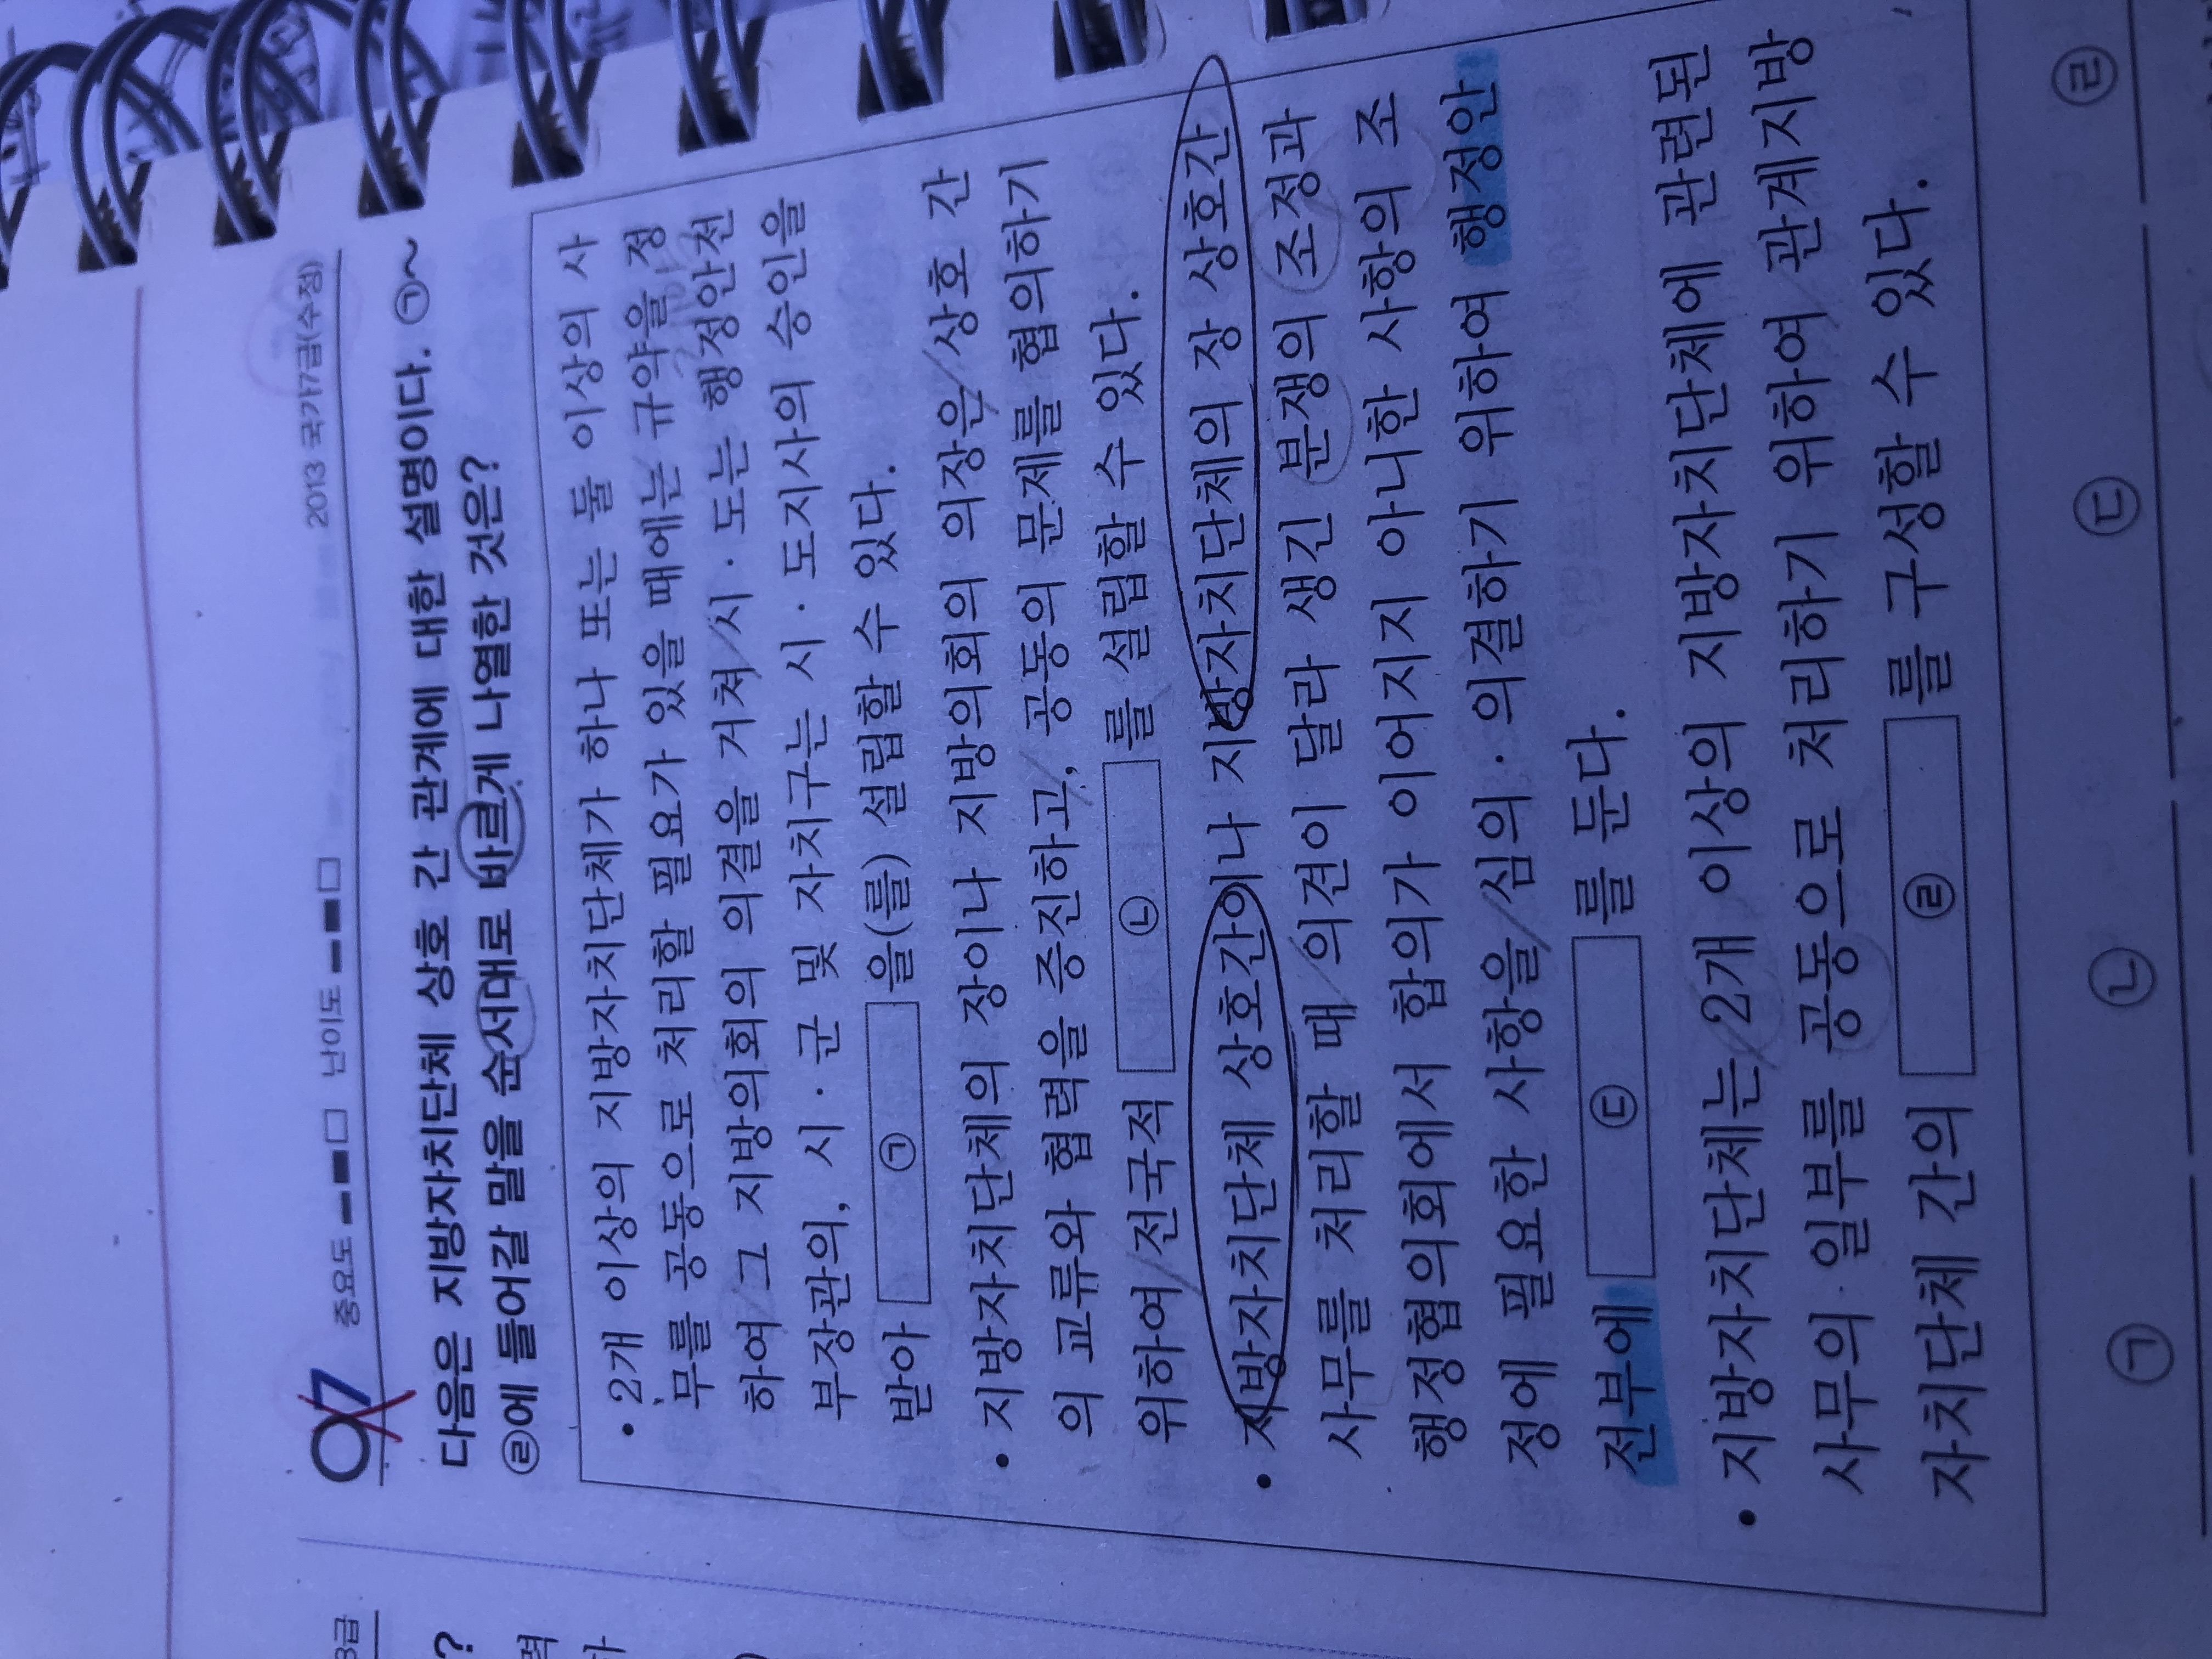 07 중요도 난이도 2013 국가7급(수정)
다음은 지방자치단체 상호 간 관계에 대한 설명이다. ㉠~
㉣에 들어갈 말을 순서대로 바르게 나열한 것은?
• 2개 이상의 지방자치단체가 하나 또는 둘 이상의 사
무를 공동으로 처리할 필요가 있을 때에는 규약을 정
하여 그 지방의회의 의결을 거쳐 시·도는 행정안전
부장관의, 시·군 및 자치구는 시·도지사의 승인을
받아 ㉠ 을(를) 설립할 수 있다.
• 지방자치단체의 장이나 지방의회의 의장은 상호 간
의 교류와 협력을 증진하고, 공동의 문제를 협의하기
위하여 전국적 ㉡ 를 설립할 수 있다.
• 지방자치단체 상호간이나 지방자치단체의 장 상호간
사무를 처리할 때 의견이 달라 생긴 분쟁의 조정과
행정협의회에서 합의가 이어지지 아니한 사항의 조
정에 필요한 사항을 심의·의결하기 위하여 행정안
전부에 ㉢ 를 둔다.
• 지방자치단체는 2개 이상의 지방자치단체에 관련된
사무의 일부를 공동으로 처리하기 위하여 관계지방
자치단체 간의 ㉣ 를 구성할 수 있다.
㉠ ㉡ ㉢ ㉣
3급
?
력